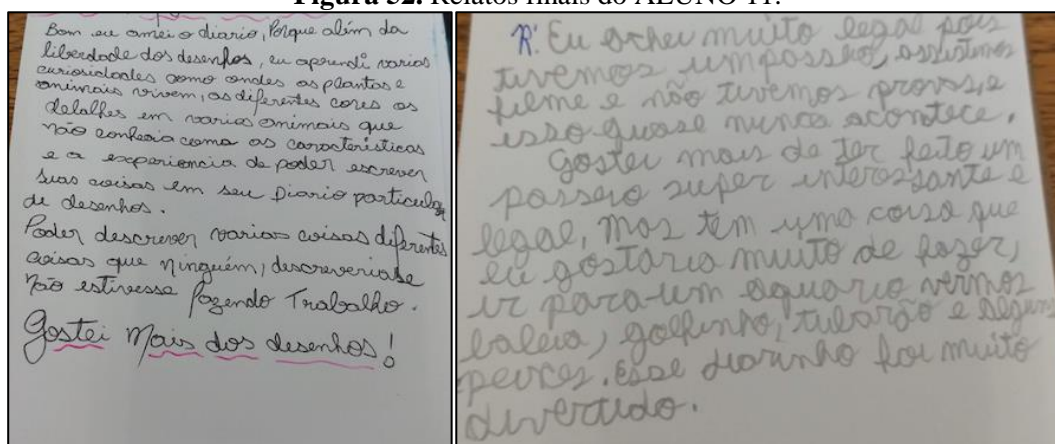 Figura 32. Relatos finais do ALUNO 11.
Bom eu amei o diario, Porque além da
liberdade dos desenhos, eu aprendi varias
curiosidades como ondes as plantas e
animais vivem, as diferentes cores os
detalhes em varios animais que
não conhecia como as caracteristicas
e a experiencia de poder escrever
suas coisas em seu Diario particular
de desenhos.
Poder descrever varias coisas diferentes
coisas que ninguém, descreveria se
não estivesse fazendo Trabalho.
Gostei Mais dos desenhos!
R: Eu achei muito legal pois
tivemos um passeio, assistimos
filme e não tivemos provas, e
isso quase nunca acontece.
Gostei mais de ter feito um
passeio super interessante e
legal, mas tem uma coisa que
eu gostaria muito de fazer,
ir para um aquario vermos
baleia, golfinho, tubarão e alguns
peixes. Esse diarinho foi muito
divertido.